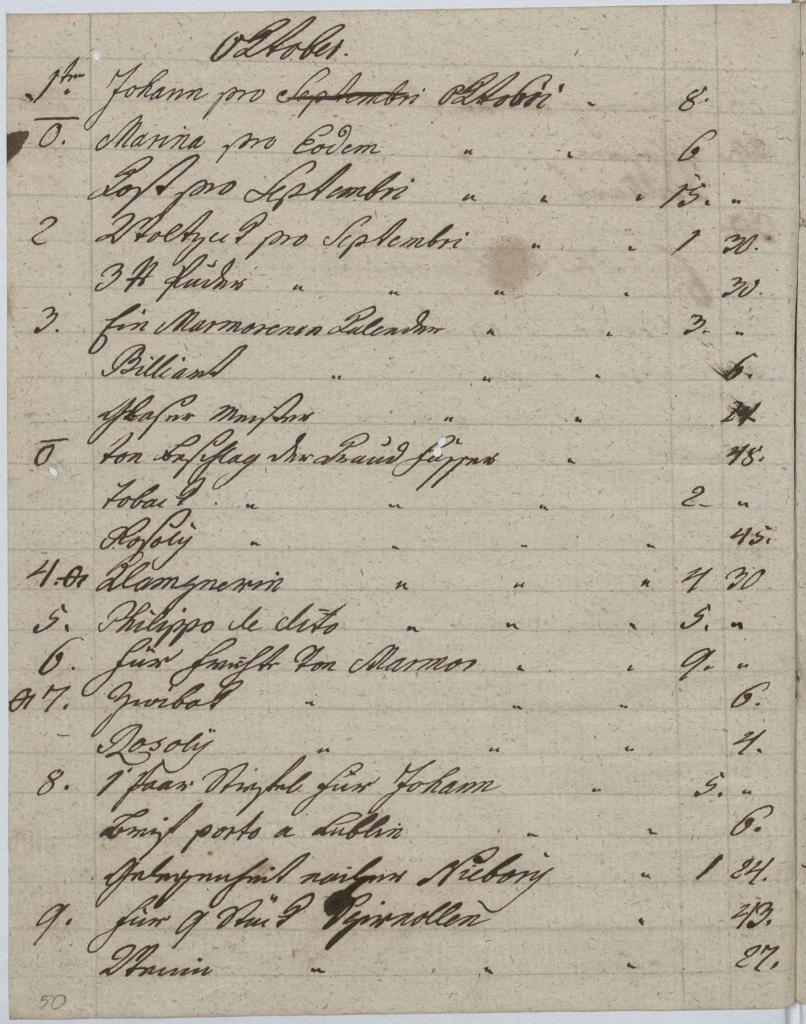 Oktober.
1ten Johann pro Septembri Oktobri " 8.
0. Marina pro Eodem " " 6
Kost pro Septembri " " " 15. "
2 pro Septembri " " 1 30.
3 ℔ Puder " " " " 30.
3. Ein Marmorenen Kalender " " 3. "
Billiard " " " 6.
Glaser Meister " "
0 von Beschlag der " 48.
Toback " " " 2 "
Rosoly " " " " 45.
4. " " " 4 30
5. Philippo de dito " " " 5. "
6. Für Früchte von Marmor " " 9. "
7. Zwiback " " " 6.
Rosoly " " " 4.
8. 1 Paar Stiefel für Johann " 5. "
Brief porto a Lublin " " 6.
Gelegenheit nacher Niebory " 1 24.
9. Für 9 Stück " 43.
" " " 27.
50